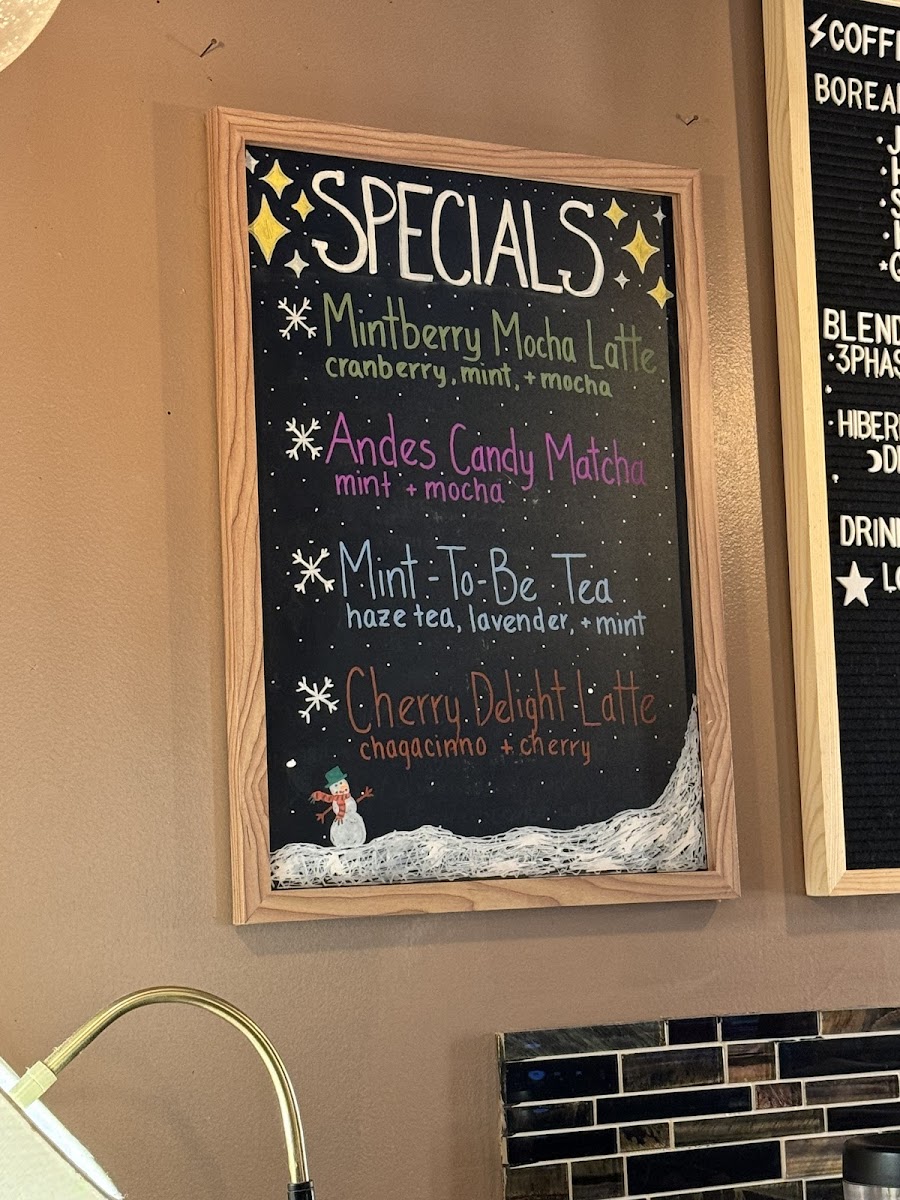 SPECIALS
Mintberry Mocha Latte
cranberry, mint, + mocha
Andes Candy Matcha
mint + mocha
Mint-To-Be Tea
haze tea, lavender, + mint
Cherry Delight Latte
chagacinno + cherry
BLEND
3PHAS